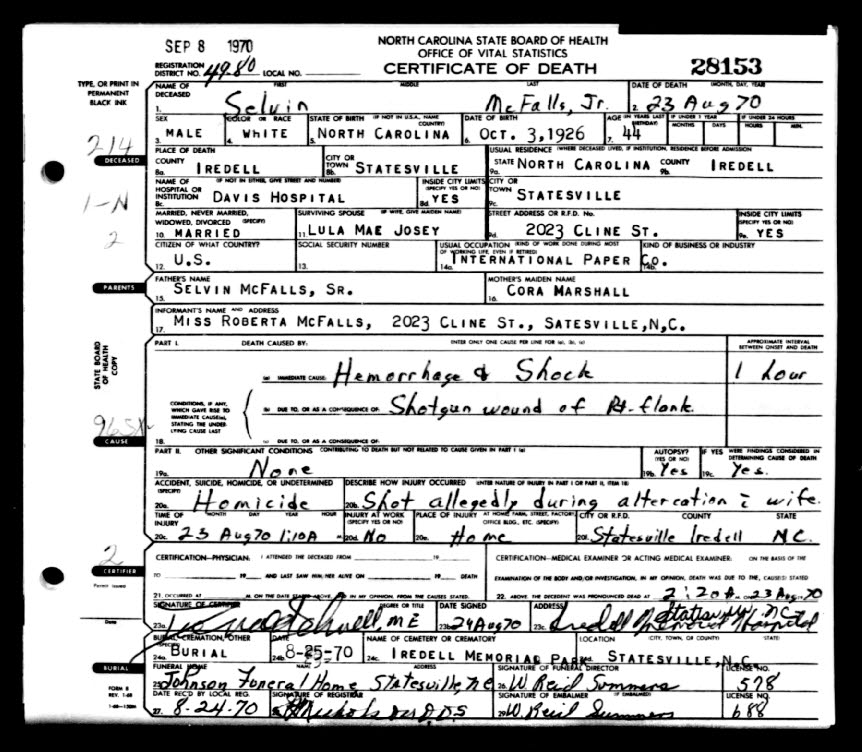 SEP 8 1970
NORTH CAROLINA STATE BOARD OF HEALTH
OFFICE OF VITAL STATISTICS
REGISTRATION DISTRICT NO. 49-80 LOCAL NO.
CERTIFICATE OF DEATH
28153
TYPE, OR PRINT IN PERMANENT BLACK INK
NAME OF DECEASED FIRST MIDDLE LAST DATE OF DEATH (MONTH, DAY, YEAR)
1. Selvin McFalls, Jr. 2. 23 Aug 70
SEX COLOR OR RACE STATE OF BIRTH (IF NOT IN U.S.A., NAME COUNTRY) DATE OF BIRTH AGE (IN YEARS LAST BIRTHDAY) IF UNDER 1 YEAR MONTHS DAYS IF UNDER 24 HOURS HOURS MIN.
3. MALE 4. WHITE 5. NORTH CAROLINA 6. OCT. 3, 1926 7. 44
214
DECEASED
PLACE OF DEATH USUAL RESIDENCE (WHERE DECEASED LIVED, IF INSTITUTION, RESIDENCE BEFORE ADMISSION)
COUNTY 8a. IREDELL CITY OR TOWN 8b. STATESVILLE STATE 9a. NORTH CAROLINA COUNTY 9b. IREDELL
NAME OF HOSPITAL OR INSTITUTION (IF NOT IN EITHER, GIVE STREET AND NUMBER) INSIDE CITY LIMITS (SPECIFY YES OR NO) CITY OR TOWN
8c. DAVIS HOSPITAL 8d. YES 9c. STATESVILLE
1-N
MARRIED, NEVER MARRIED, WIDOWED, DIVORCED (SPECIFY) SURVIVING SPOUSE (IF WIFE, GIVE MAIDEN NAME) STREET ADDRESS OR R.F.D. No. INSIDE CITY LIMITS
10. MARRIED 11. LULA MAE JOSEY 9d. 2023 CLINE ST. 9e. YES
2
CITIZEN OF WHAT COUNTRY? SOCIAL SECURITY NUMBER USUAL OCCUPATION (KIND OF WORK DONE DURING MOST OF WORKING LIFE, EVEN IF RETIRED) KIND OF BUSINESS OR INDUSTRY
12. U.S. 13. 14a. INTERNATIONAL PAPER CO. 14b.
PARENTS
FATHER'S NAME MOTHER'S MAIDEN NAME
15. SELVIN MCFALLS, SR. 16. CORA MARSHALL
INFORMANT'S NAME AND ADDRESS
17. MISS ROBERTA MCFALLS, 2023 CLINE ST., SATESVILLE,N.C.
STATE BOARD OF HEALTH COPY
PART I. DEATH CAUSED BY: ENTER ONLY ONE CAUSE PER LINE FOR (a), (b), (c) APPROXIMATE INTERVAL BETWEEN ONSET AND DEATH
(a) IMMEDIATE CAUSE: Hemorrhage & Shock 1 hour
CONDITIONS, IF ANY, WHICH GAVE RISE TO IMMEDIATE CAUSE(a), STATING THE UNDERLYING CAUSE LAST
(b) DUE TO, OR AS A CONSEQUENCE OF: Shotgun wound of Rt. flank.
18. (c) DUE TO, OR AS A CONSEQUENCE OF:
CAUSE
PART II. OTHER SIGNIFICANT CONDITIONS CONTRIBUTING TO DEATH BUT NOT RELATED TO CAUSE GIVEN IN PART I (a) AUTOPSY? (YES OR NO) IF YES WERE FINDINGS CONSIDERED IN DETERMINING CAUSE OF DEATH
19a. None 19b. Yes 19c. Yes.
ACCIDENT, SUICIDE, HOMICIDE, OR UNDETERMINED (SPECIFY) DESCRIBE HOW INJURY OCCURRED (ENTER NATURE OF INJURY IN PART I OR PART II, ITEM 18)
20a. Homicide 20b. Shot allegedly during altercation c̄ wife.
TIME OF INJURY MONTH DAY YEAR HOUR INJURY AT WORK (SPECIFY YES OR NO) PLACE OF INJURY AT HOME, FARM, STREET, FACTORY, OFFICE BLDG., ETC. (SPECIFY) CITY OR R.F.D. COUNTY STATE
20c. 23 Aug 70 1:10A m 20d. No 20e. Home 20f. Statesville Iredell N.C.
2
CERTIFIER
CERTIFICATION—PHYSICIAN: I ATTENDED THE DECEASED FROM 19 CERTIFICATION—MEDICAL EXAMINER OR ACTING MEDICAL EXAMINER: ON THE BASIS OF THE
TO 19 AND LAST SAW HIM/HER ALIVE ON 19 DEATH EXAMINATION OF THE BODY AND/OR INVESTIGATION, IN MY OPINION, DEATH WAS DUE TO THE CAUSE(S) STATED
21. OCCURRED AT M. ON THE DATE STATED ABOVE, IN MY OPINION, FROM THE CAUSES STATED 22. ABOVE. THE DECEDENT WAS PRONOUNCED DEAD AT 2:20 A. 23 Aug 70
Date
SIGNATURE OF CERTIFIER DEGREE OR TITLE DATE SIGNED ADDRESS
23a. ME 23b. 24 Aug 70 23c. Iredell Memorial Hospital Statesville, N.C.
BURIAL, CREMATION, OTHER DATE NAME OF CEMETERY OR CREMATORY LOCATION (CITY, TOWN, OR COUNTY) (STATE)
24a. BURIAL 24b. 8-25-70 24c. IREDELL MEMORIAL PARK STATESVILLE,N.C.
BURIAL
FUNERAL HOME NAME ADDRESS SIGNATURE OF FUNERAL DIRECTOR LICENSE NO.
25. Johnson Funeral Home Statesville, NC 26. W. Reid Summers 578
FORM 8
REV. 1-68
DATE REC'D BY LOCAL REG. SIGNATURE OF REGISTRAR SIGNATURE OF EMBALMER LICENSE NO.
27. 8-24-70 29. W. Reid Summers 688